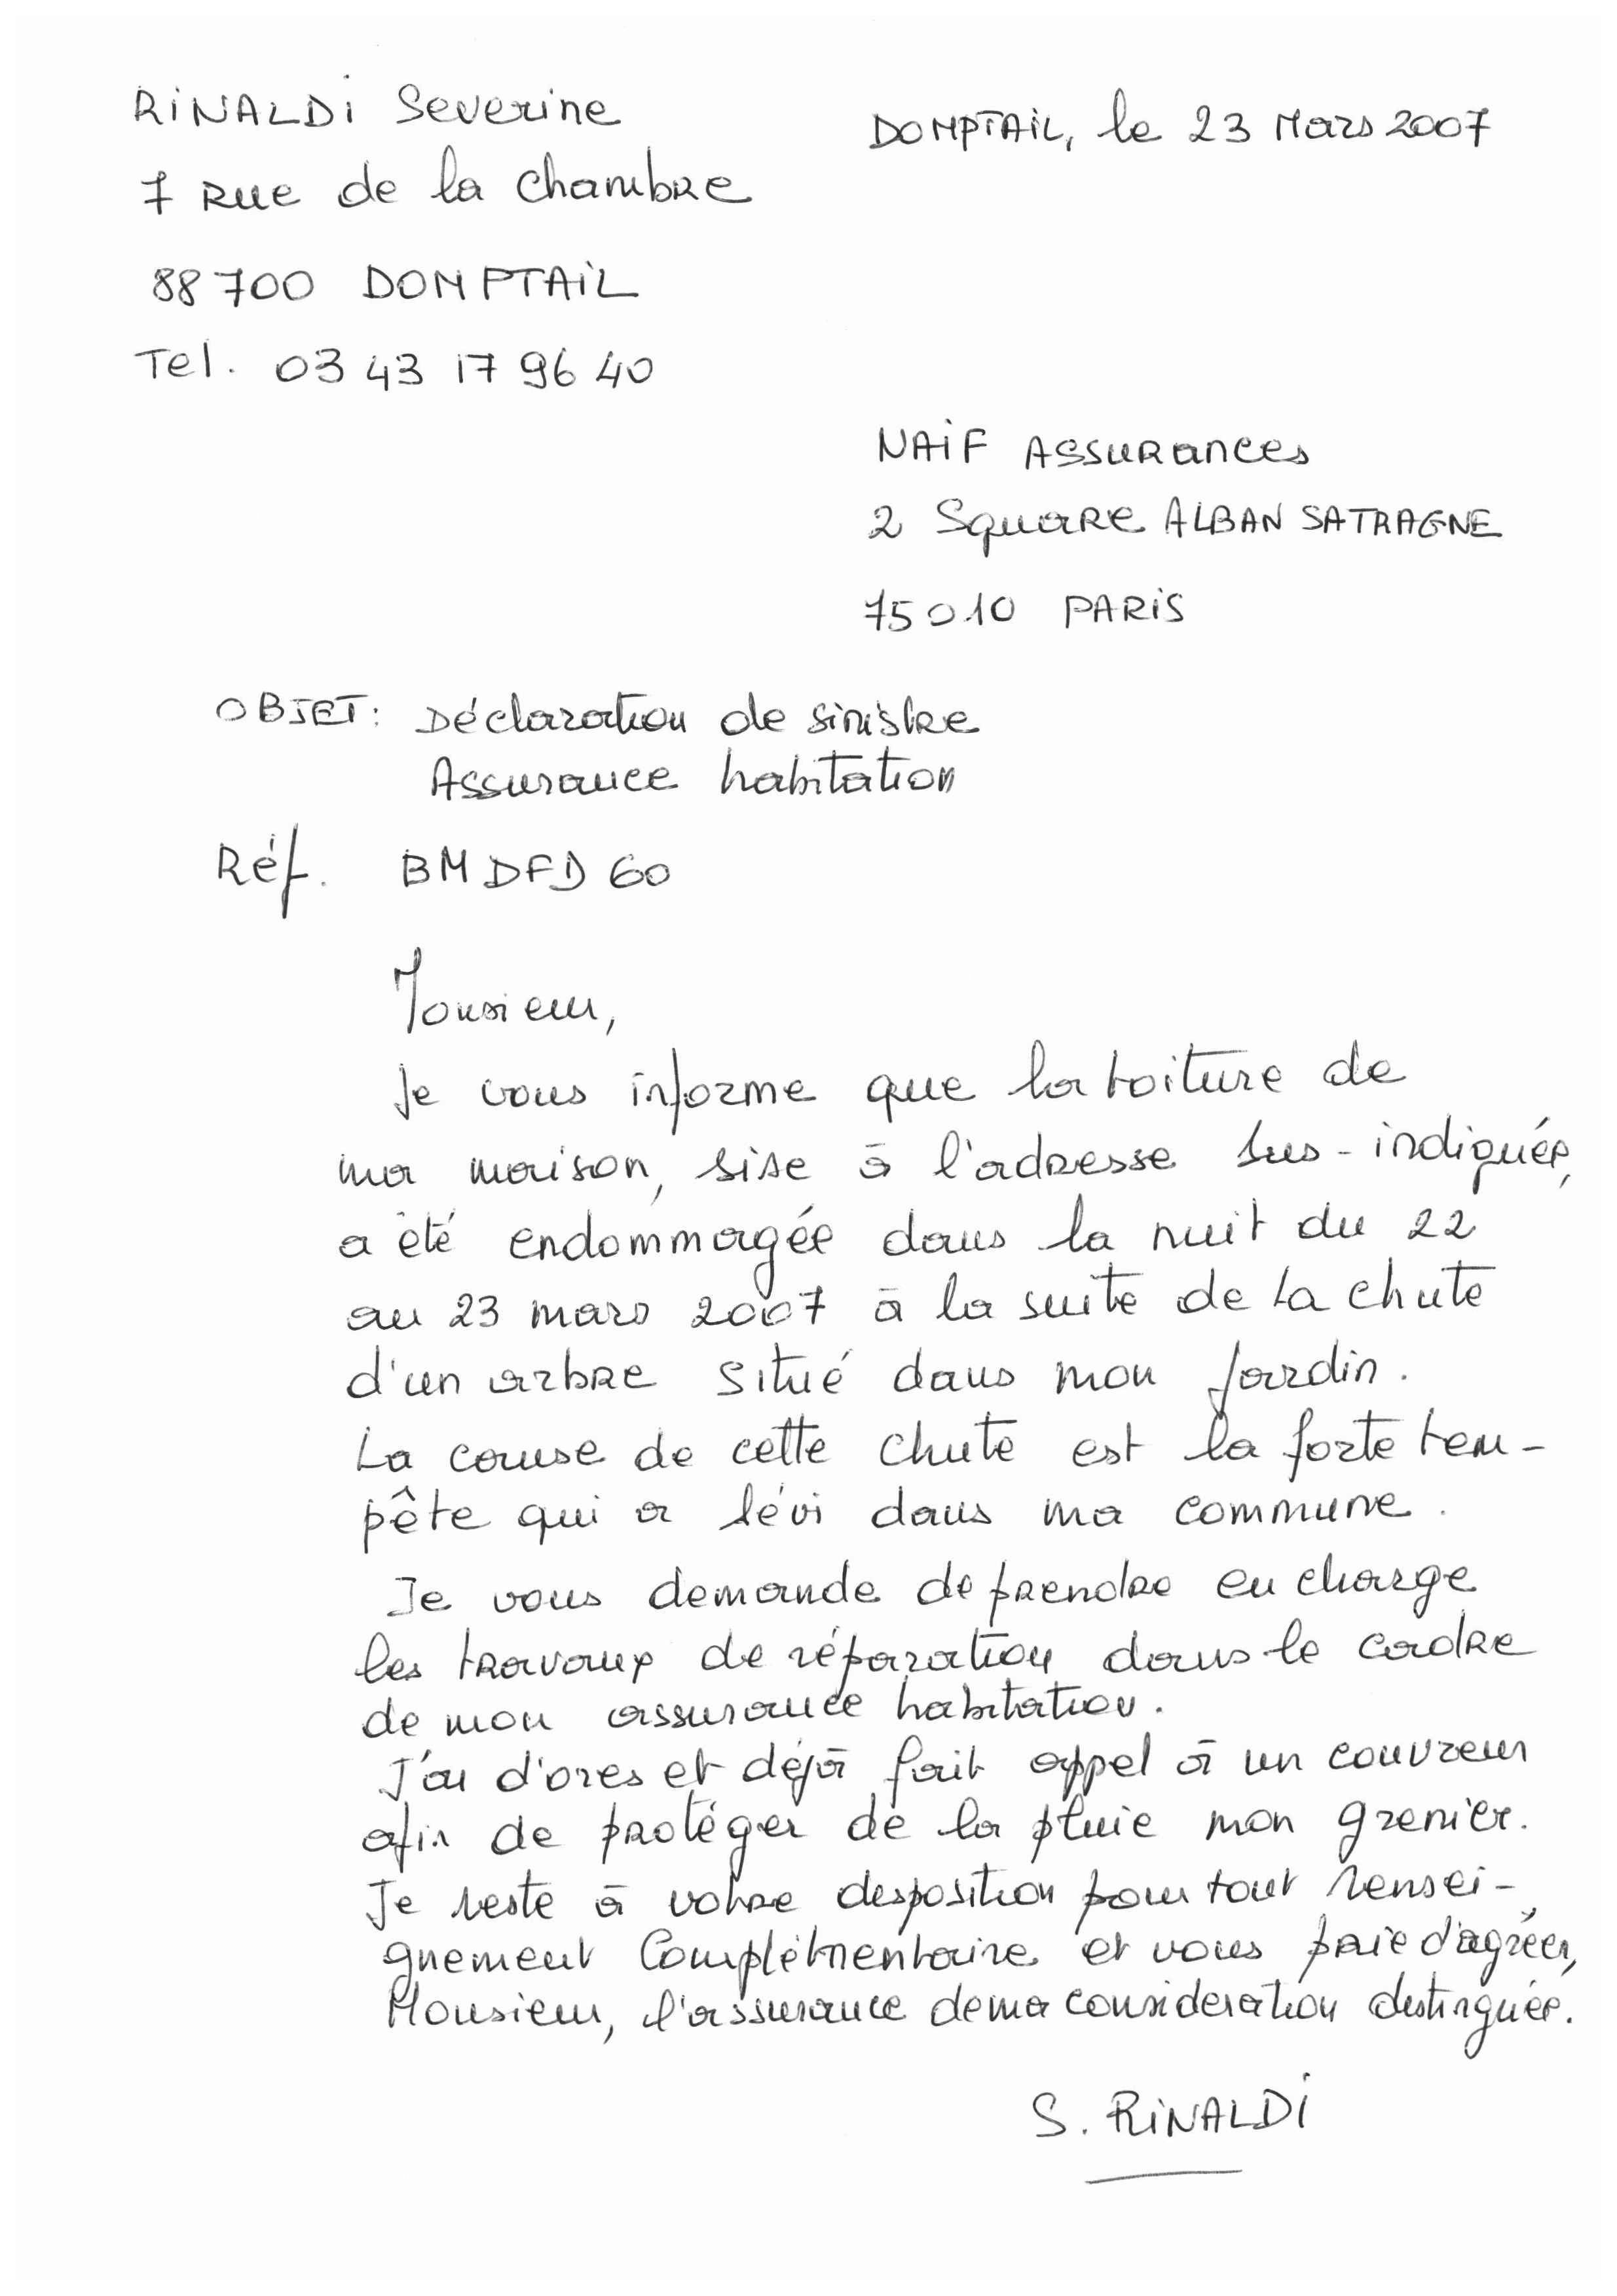 RINALDI Severine
DOMPTAIL, le 23 Mars 2007
7 Rue de la chambre
88700 DOMPTAIL
Tel. 03 43 17 96 40
NAIF Assurances
2 Square ALBAN SATRAGNE
75010 PARIS
OBJET: Déclaration de sinistre
Assurance habitation
Réf. BMDFD60
Monsieur,
Je vous informe que la toiture de
ma maison, sise à l'adresse sus-indiquée,
a été endommagée dans la nuit du 22
au 23 mars 2007 à la suite de la chute
d'un arbre situé dans mon jardin.
La cause de cette chute est la forte tem-
pête qui a sévi dans ma commune.
Je vous demande de prendre en charge
les travaux de réparation dans le cadre
de mon assurance habitation.
J'ai d'ores et déjà fait appel à un couvreur
afin de protéger de la pluie mon grenier.
Je reste à votre desposition pour tout rensei-
gnement complémentaire et vous prie d'agréer,
Monsieur, l'assurance de ma consideration distinguée.
S. RINALDI